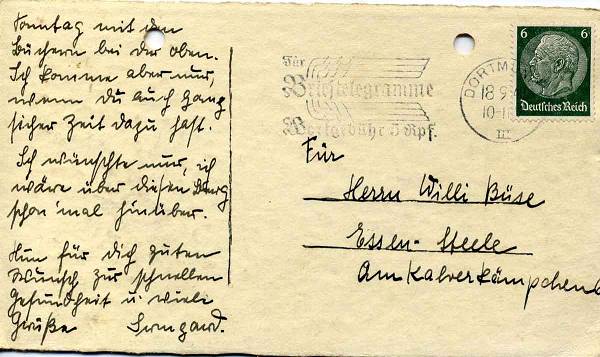 Sonntag mit den
Büchern bei der oben.
Ich komme aber nur,
wenn du auch ganz
sicher Zeit dazu hast.
Ich wünschte nur, ich
wäre über diesen Berg
schon 'mal hinüber.
Nun für dich guten
Wunsch zur schnellen
Gesundheit u. viele
Grüße Irmgard.
Für
Briefstelegramme
Wortgebühr 5 Rpf.
DORTMU
18 9
10-1
III
6 6
Deutsches Reich
Für
Herrn Willi Büse
Essen-Steele
Am Kalverkämpchen 6